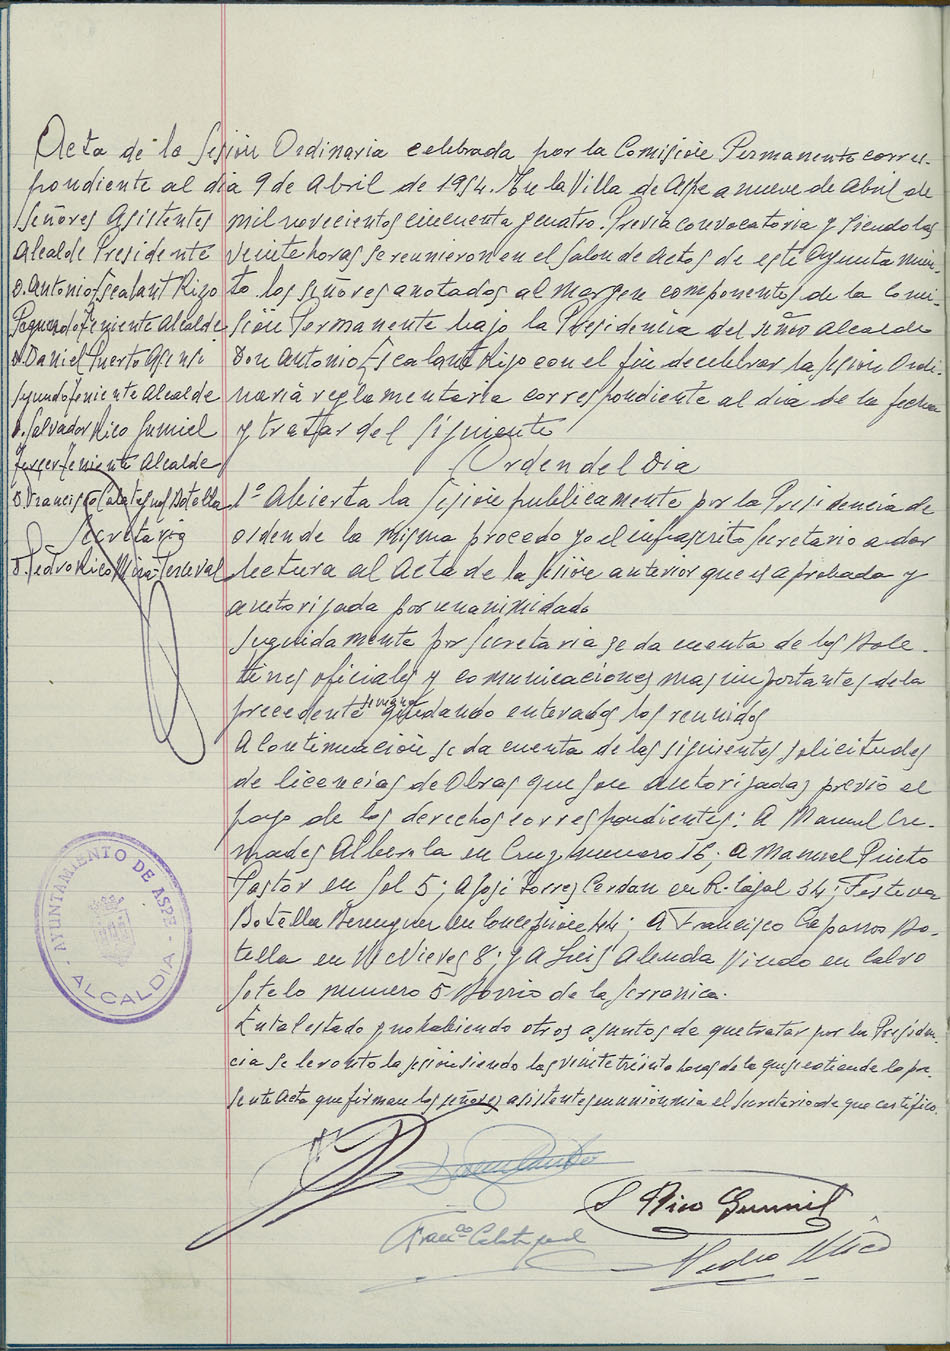 Acta de la Sesión Ordinaria celebrada por la Comisión Permanente corres-
pondiente al día 9 de Abril de 1954. En la Villa de Aspe a nueve de Abril de
mil novecientos cincuenta y cuatro. Previa convocatoria y siendo las
veinte horas se reunieron en el Salon de actos de este Ayuntamien-
to los señores anotados al margen componentes de la Comi-
sión Permanente bajo la Presidencia del señor Alcalde
Don Antonio Escalant Rizo con el fin de celebrar la sesión Ordi-
naria reglamentaria correspondiente al dia de la fecha
y tratar del siguiente
Señores Asistentes
Alcalde Presidente
D. Antonio Escalant Rizo
Teniente Alcalde
D. Daniel Puerto Asensi
Segundo Teniente Alcalde
D. Salvador Rico Gumiel
Tercer Teniente Alcalde
D. Francisco Calatayud Botella
Secretario
D. Pedro Rico Mira-Perceval
Orden del Dia
1º Abierta la Sesión publicamente por la Presidencia de
orden de la misma procedo yo el infrascrito Secretario a dar
lectura al Acta de la sesión anterior que es aprobada y
autorizada por unanimidad
Seguidamente por Secretaria se da cuenta de los Bole-
tines oficiales y comunicaciones mas importantes de la
precedente semana quedando enterados los reunidos
A continuación se da cuenta de las siguientes solicitudes
de licencias de Obras que son autorizadas previo el
pago de los derechos correspondientes: A Manuel Cre-
mades Alberola en Cruz numero 16; a Manuel Prieto
Pastor en Sol 5; a José Torres Cerdan en R. Cajal 34;
Botella Berenguer en Concepción 44; A Francisco Caparros Bo-
tella en Nieves 8; y A Luis Alenda Pindo en Calvo
Sotelo numero 5 Barrio de la Serranica.
En tal estado y no habiendo otros asuntos de que tratar por la Presiden-
cia se levanto la sesión siendo las veinte treinta horas de la que se extiende la pre-
sente Acta que firman los señores asistentes en union mia el Secretario de que certifico.
AYUNTAMIENTO DE ASPE
ALCALDIA
S Rico Gumiel
Franco Calatayud
Pedro Rico